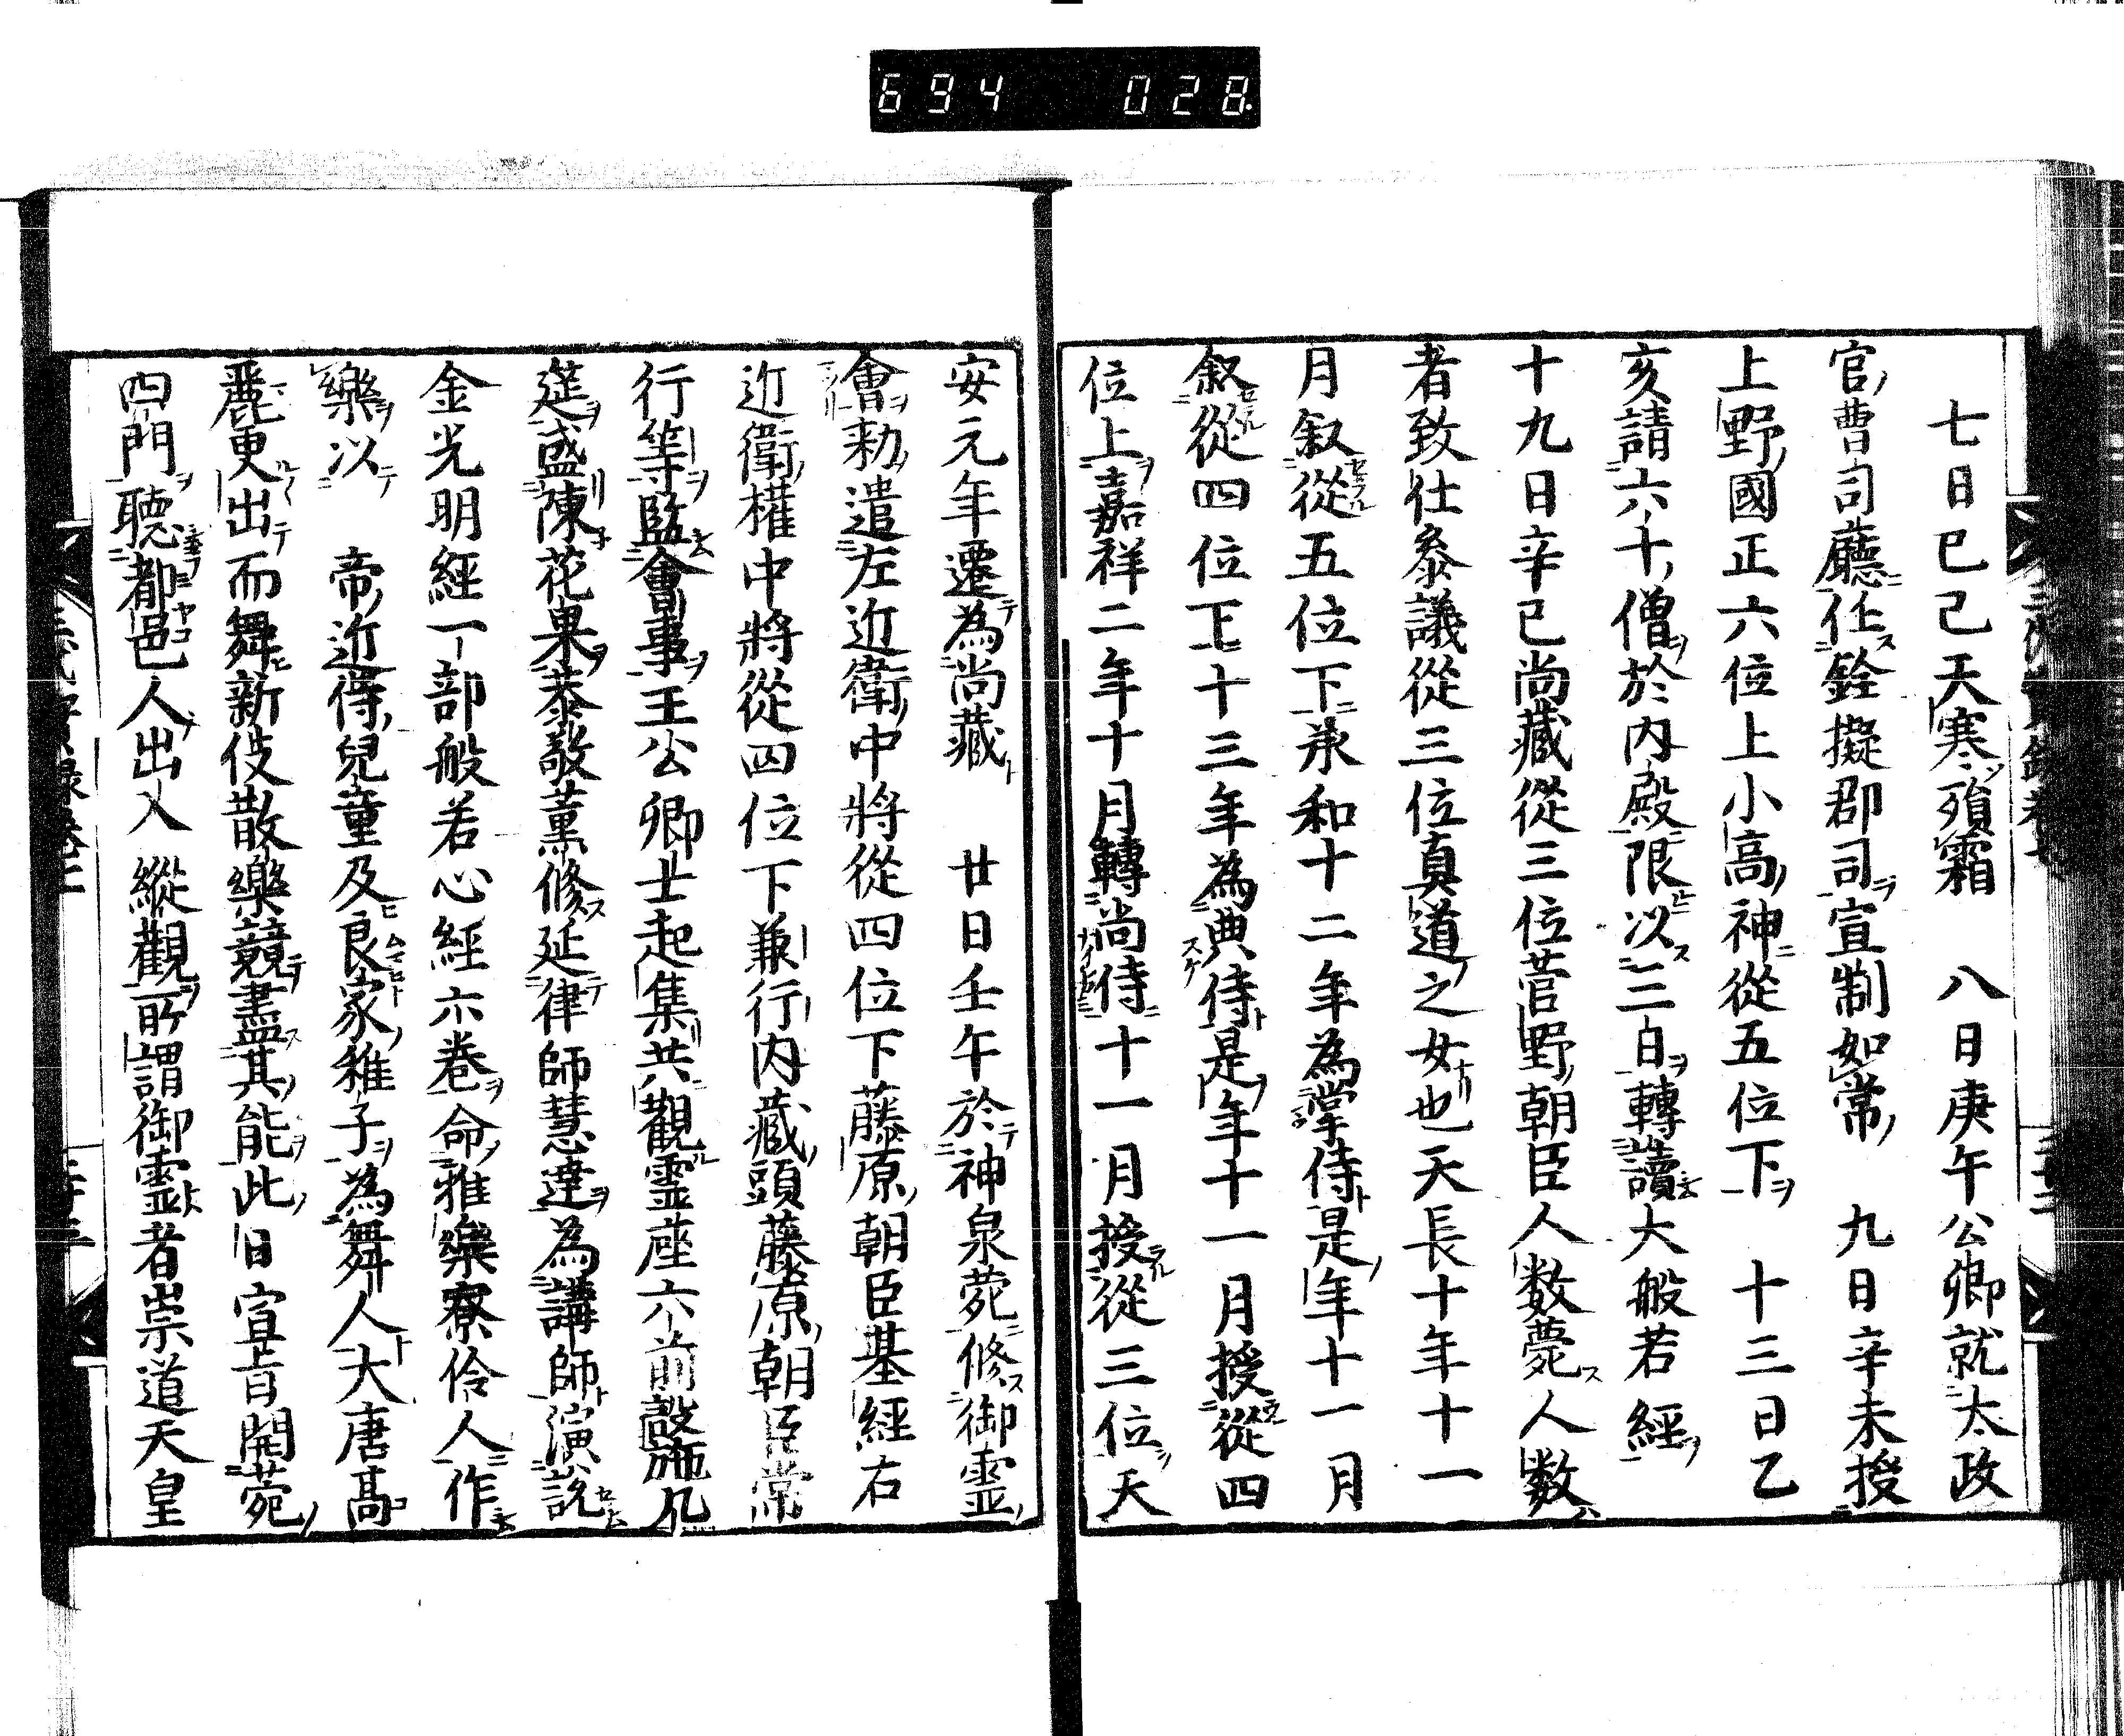 694 028
七日己巳天寒殞霜　八日庚午公卿就太政
官曹司廳任銓擬郡司宣制如常　九日辛未授
上野國正六位上小高神從五位下　十三日乙
亥請六十僧於內殿限以三日轉讀大般若經
十九日辛巳尚藏從三位菅野朝臣人数薨人数
者致仕叅議從三位真道之女也天長十年十一
月叙從五位下承和十二年為掌侍是年十一月
叙從四位下十三年為典侍是年十一月授從四
位上嘉祥二年十月轉尚侍十一月授從三位天
安元年遷為尚藏　廿日壬午於神泉苑修御霊
會勅遣左近衛中將從四位下藤原朝臣基經右
近衛權中將從四位下兼行內藏頭藤原朝臣常
行等監會事王公卿士起集共觀霊座六前設施几
筵盛陳花果恭敬薫修延律師慧達為講師演說
金光明經一部般若心經六卷命雅樂寮伶人作
樂以　帝近侍兒童及良家稚子為舞人大唐髙
麗更出而舞新伎散樂競盡其能此日宣旨開苑
四門聽都邑人出入縱觀所謂御霊者崇道天皇